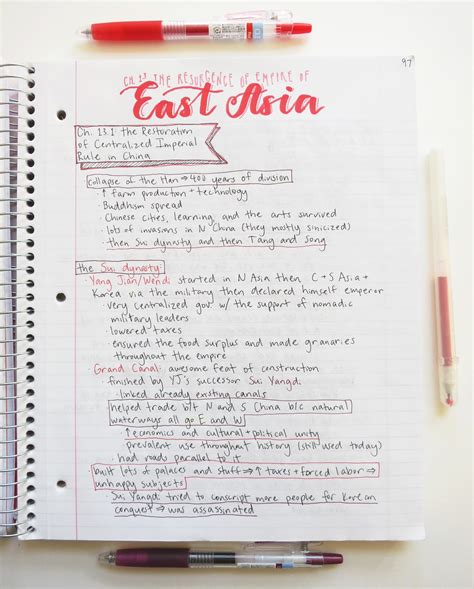 97
Ch. 13 the Resurgence of Empire of
East Asia
Ch. 13.1 the Restoration
of Centralized Imperial
Rule in China
collapse of the Han ⇒ 400 years of division
↑ farm production + technology
· Buddhism spread
· Chinese cities, learning and the arts survived
· lots of invasions in N China (they mostly sinicized)
· then Sui dynasty and then Tang and Song
the Sui dynasty:
· Yang Jian/Wendi: started in N Asia then C + S Asia +
Korea via the military then declared himself emperor
· very centralized gov w/ the support of nomadic
military leaders
· lowered taxes
· ensured the food surplus and made granaries
throughout the empire
· Grand Canal: awesome feat of construction
· finished by YJ's successor Sui Yangdi
· linked already existing canals
helped trade b/t N and S China b/c natural
waterways all go E and W
↑ economics and cultural + political unity
· prevalent use throughout history (still used today)
· had roads parallel to it
built lots of palaces and stuff ⇒ ↑ taxes + forced labor ⇒
unhappy subjects
· Sui Yangdi tried to conscript more people for Korean
conquest ⇒ was assassinated